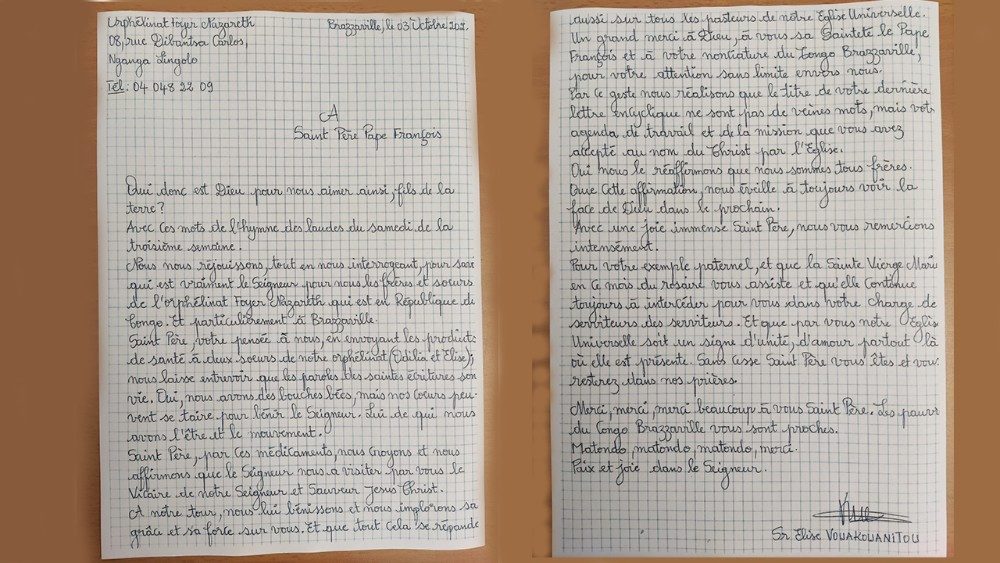 Orphélinat Foyer Nazareth
Brazzaville, le 03 Octobre 202.
08, rue Dibantsa Carlos,
Nganga Lingolo
Tél: 04 048 22 09
A
Saint Père Pape François
Qui donc est Dieu pour nous aimer ainsi, fils de la
terre?
Avec ces mots de l'hymne des laudes du samedi de la
troisième semaine.
Nous nous réjouissons, tout en nous interrogeant, pour savoi
qui est vraiment le Seigneur pour nous les frères et soeurs
de l'orphélinat Foyer Nazareth qui est en République du
Congo. Et particulièrement à Brazzaville.
Saint Père, votre pensée à nous, en envoyant les produits
de santé à deux soeurs de notre orphélinat (Odilia et Elise),
nous laisse entrevoir que les paroles des saintes écritures son
vie. Oui, nous avons des bouches bées, mais nos coeurs peu-
vent se taire pour bénir le Seigneur. Lui de qui nous
avons l'être et le mouvement.
Saint Père, par ces médicaments, nous croyons et nous
affirmons que le Seigneur nous a visiter par vous le
Vicaire de notre Seigneur et Sauveur Jesus Christ.
A notre tour, nous lui bénissons et nous implorons sa
grâce et sa force sur vous. Et que tout cela se répande
aussi sur tous les pasteurs de notre Eglise Universelle.
Un grand merci à Dieu, à vous sa Sainteté le Pape
François et à votre nontiature du Congo Brazzaville,
pour votre attention sans limite envers nous.
Par ce geste nous réalisons que le titre de votre dernière
lettre encyclique ne sont pas de veines mots, mais votr
agenda de travail et de la mission que vous avez
accepté au nom du Christ par l'Eglise.
Oui nous le réaffirmons que nous sommes tous frères.
Que cette affirmation, nous éveille à toujours voir la
face de Dieu dans le prochain.
Avec une joie immense Saint Père, nous vous remercions
intensément.
Pour votre exemple paternel, et que la Sainte Vierge Mari
en ce mois du rosaire vous assiste et qu'elle continue
toujours à intercéder pour vous dans votre charge de
serviteurs des serviteurs. Et que par vous notre Eglise
Universelle soit un signe d'unité, d'amour partout là
où elle est présente. Sans cesse Saint Père vous êtes et vous
resterez dans nos prières.
Merci, merci, merci beaucoup à vous Saint Père. Les pauvr
du Congo Brazzaville vous sont proches.
Matondo, matondo, matondo, merci.
Paix et joie dans le Seigneur.
Sr Elise VOUAKOUANITOU